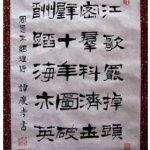 江歌罷掉頭
密羣科濟世
壁十年圖破
酬蹈海亦英
周恩來總理詩